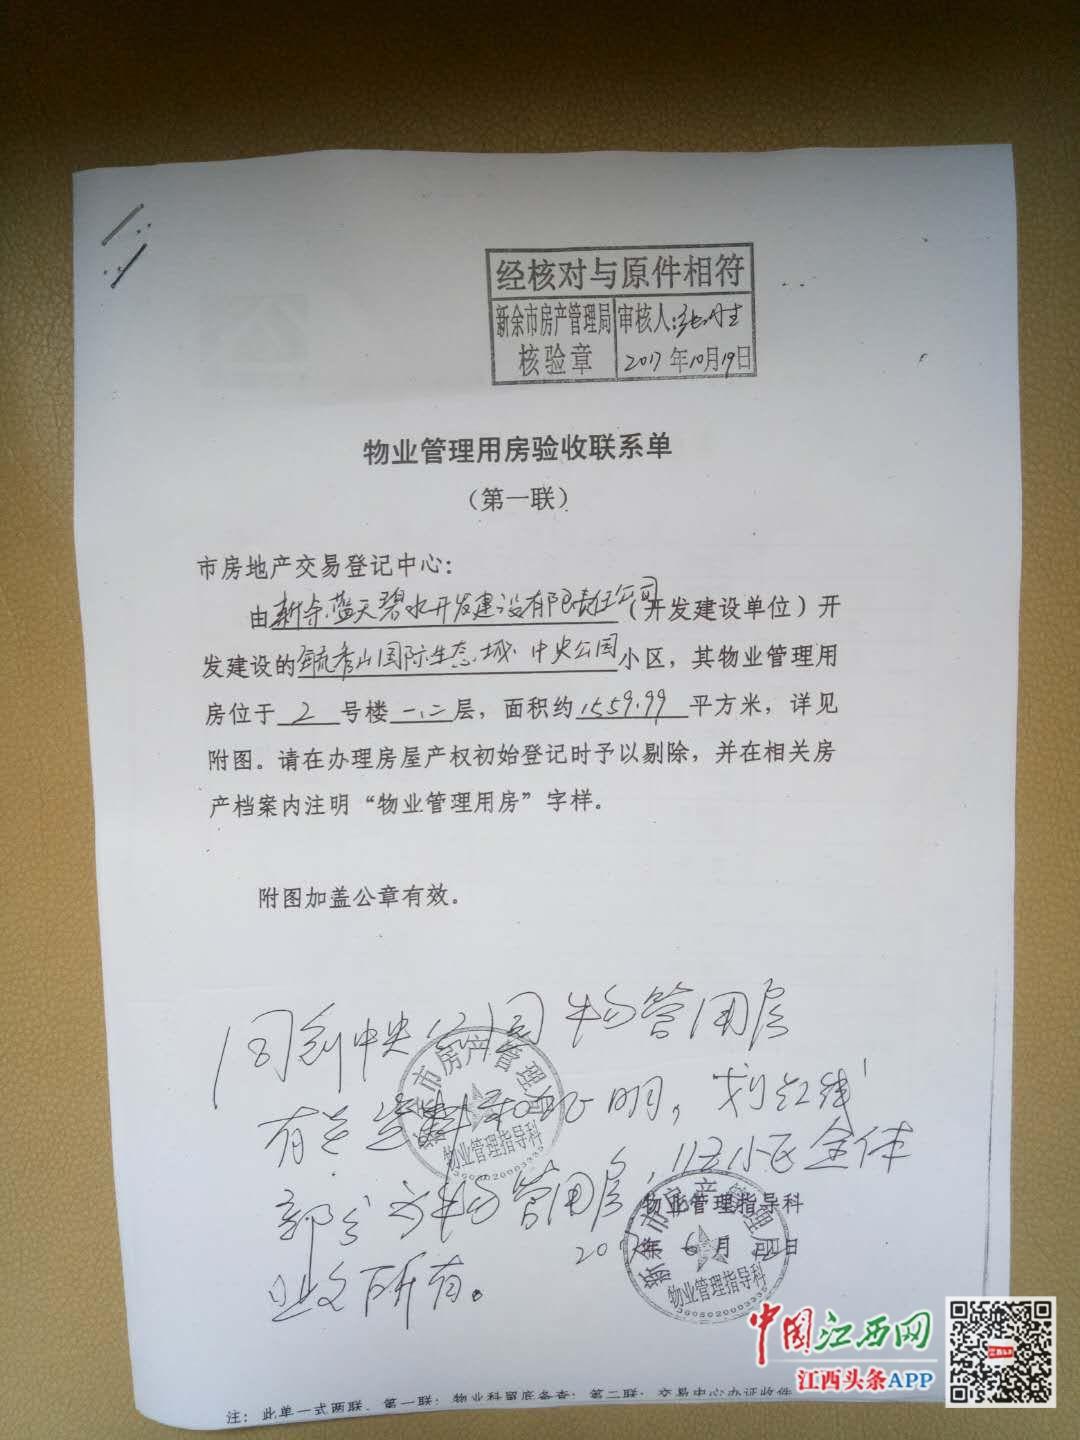 经核对与原件相符
新余市房产管理局
核验章
审核人:
2017年10月19日
物业管理用房验收联系单
(第一联)
市房地产交易登记中心:
由新余蓝天碧水开发建设有限责任公司(开发建设单位)开
发建设的毓秀山国际生态城·中央公园小区,其物业管理用
房位于 2 号楼 一、二层,面积约1559.99平方米,详见
附图。请在办理房屋产权初始登记时予以剔除,并在相关房
产档案内注明“物业管理用房”字样。
附图加盖公章有效。
同创中央公园物管用房
有关资料和证明,划红线
部分为物管用房,归小区全体
业主所有。
新余市房产管理局
物业管理指导科
3605020003335
物业管理指导科
年6月 日
新余市房产管理局
物业管理指导科
3605020003335
注:此单一式两联,第一联:物业科留底备查;第二联:交易中心办证收件
中国江西网
江西头条APP